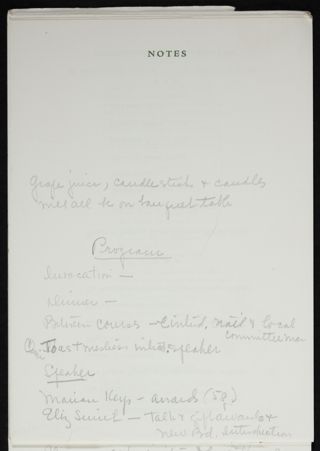 NOTES
Grape juice, candle sticks & candles
on banquet table
Program
Invocation —
Dinner —
Between course — Introd. Nat'l & local
committee men
Toast master introd. speaker
Speaker
Marian Keys — awards (59)
Eliz Smith — Talk &
New Bd. introduction